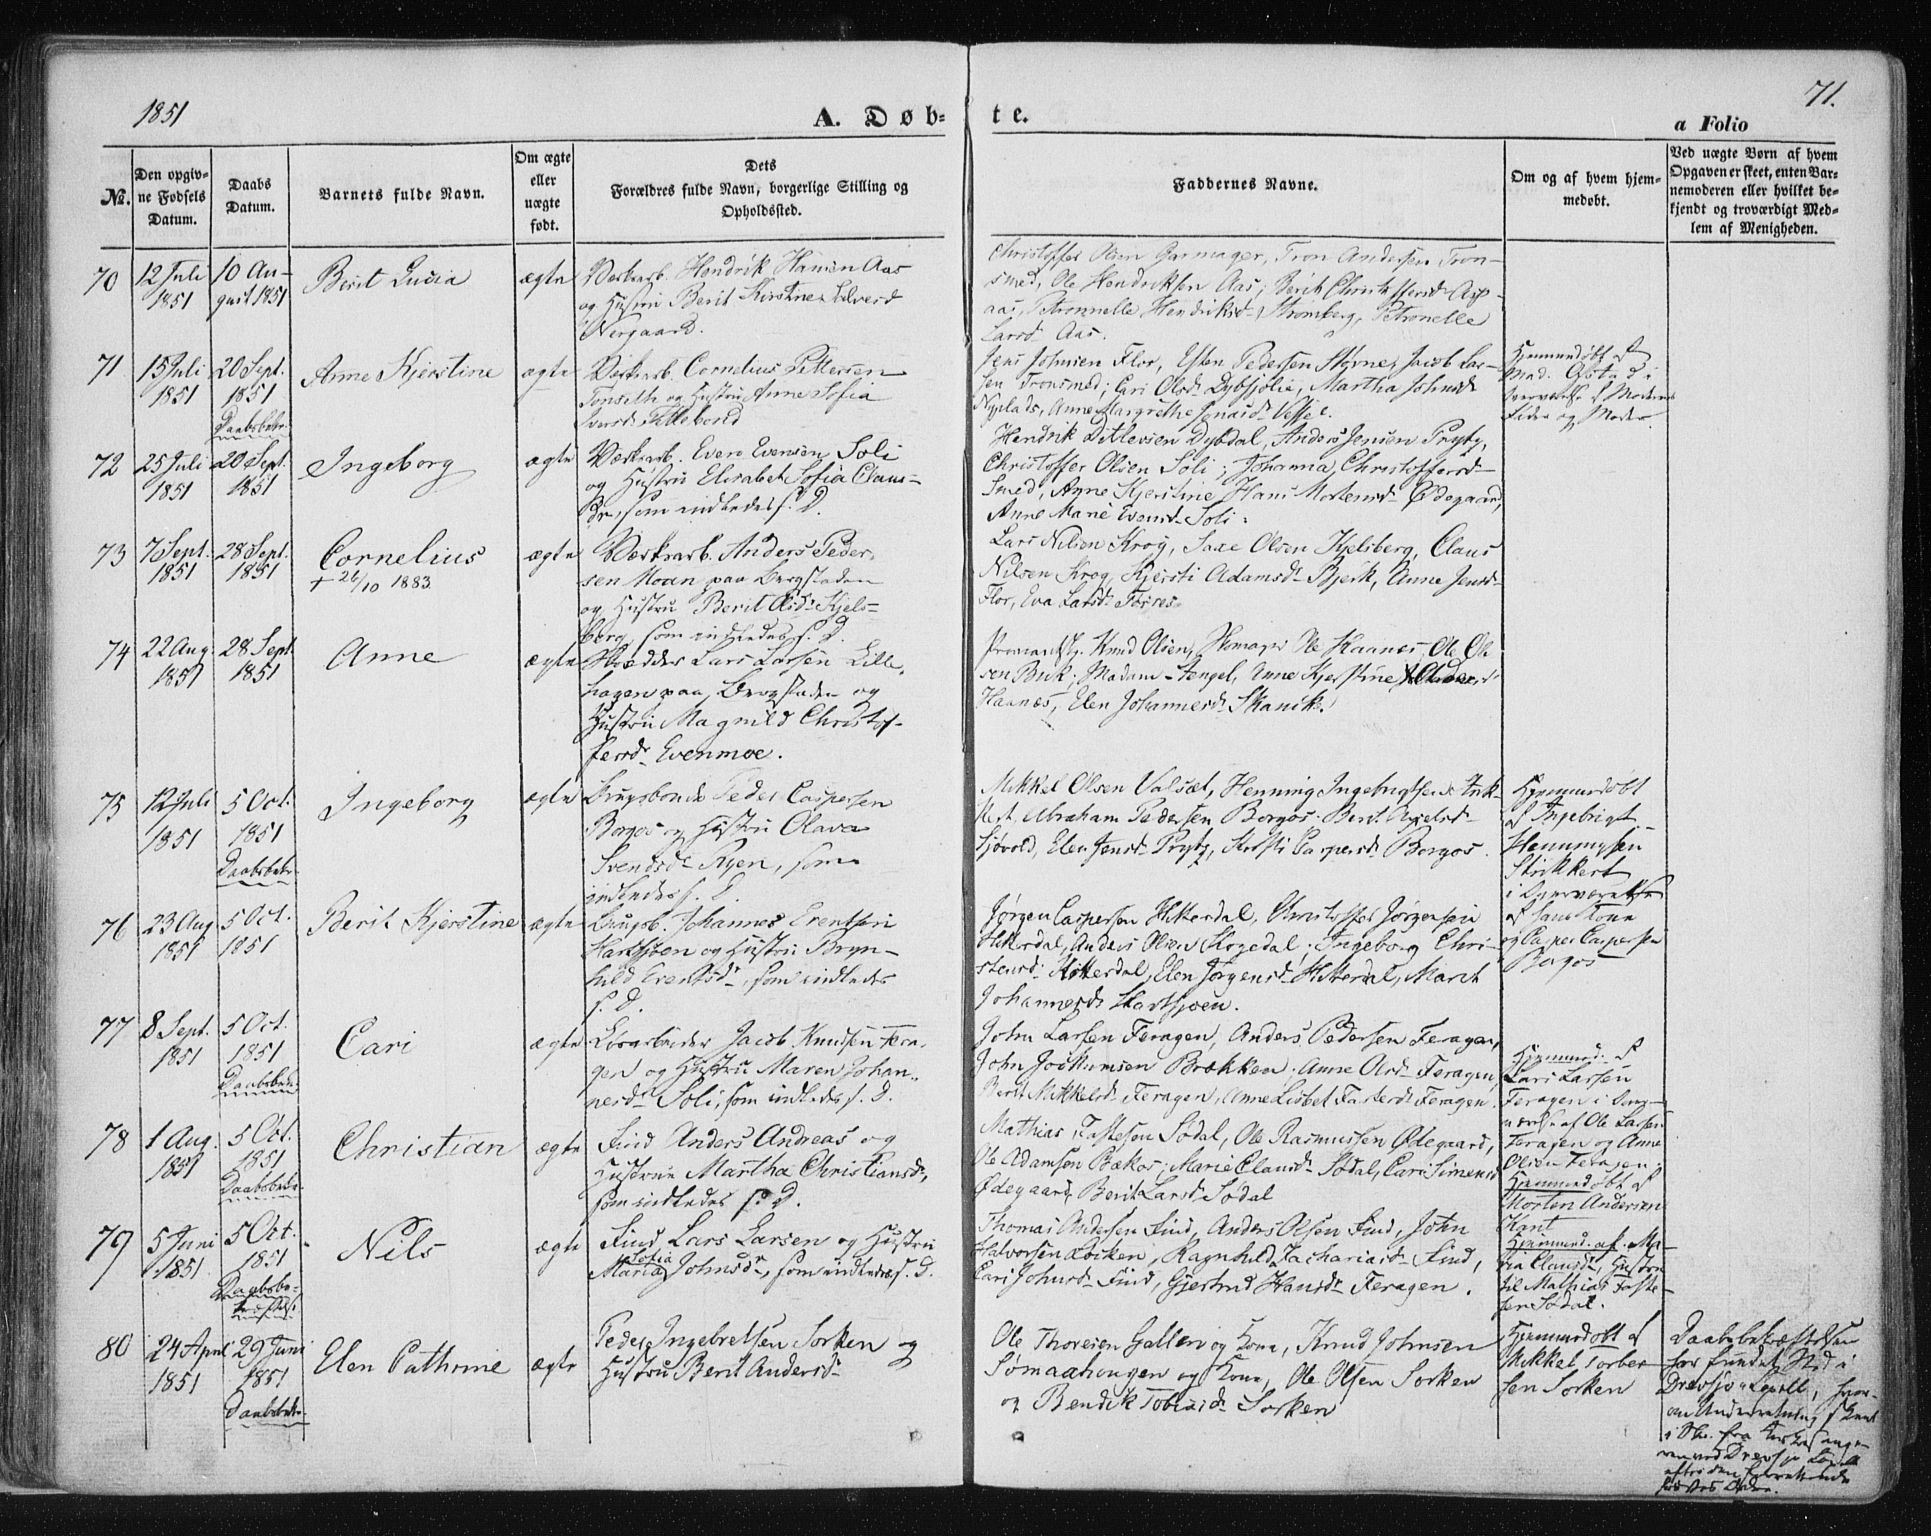 1851
A. Døb-
te.
71.
a Folio
No.
Den opgiv-
ne Fødsels
Datum.
Daabs
Datum.
Barnets fulde Navn.
Om ægte
eller
uægte
født.
Dets
Forældres fulde Navn, borgerlige Stilling og
Opholdssted.
Faddernes Navne.
Om og af hvem hjem-
medøbt.
Ved uægte Børn af hvem
Opgaven er skeet, enten Bar-
nemoderen eller hvilket be-
kjendt og troværdigt Med-
lem af Menigheden.
70
12 Juli
1851
10 Au-
gust 1851
Berit Lucia
ægte
Værkarb. Hendrik Hansen Aas
og Hustru Berit Kirstine
Nergaard.
Christoffer Olsen Garmager, Tron Andersen Tron-
smed, Ole Hendriksen Aas; Berit Christoffersd Asp-
aas, Petronnelle Hendriksd Stromberg, Petronelle
Larsd Aas.
71
15 Juli
1851
20 Sept.
1851
Daabsbekr.
Anne Kjerstine
ægte
Værkarb. Cornelius Pettersen
Tonseth og Hustru Anne Sofia
Iversd
Jens Johnsen Flor, Esten Pedersen Jacob Lar-
sen Tronsmed; Cari Olsd Martha Johnsd
Nyplads, Anne Margrethe
Hjemmedøbt af
Mad.
Overværelse af Moderens
Fader og Moder.
72
25 Juli
1851
20 Sept.
1851
Ingeborg
ægte
Værkarb. Even Evensen Soli
og Hustru Elisabet Sofia Claus-
dr, som indledes s. D.
Hendrik Ditlevsen Dybdal, Anders Jensen Prytz,
Christoffer Olsen Soli; Johanna Christoffersd
Smed, Anne Kjerstine Hans Mortensd Ødegaard,
Anne Marie Evensd Soli.
73
7 Sept.
1851
28 Sept.
1851
Cornelius
+ 26/10 1883
ægte
Værkarb. Anders Peder-
sen Moen paa Bergstaden
og Hustru Berit Olsd Kjels-
berg, som indledes s. D.
Lars Nilsen Krog, Saxe Olsen Kjelsberg, Claus
Nilsen Krog, Kjersti Adamsd Bjerk, Anne Jensd
Flor, Eva Larsd Torres.
74
22 Aug.
1851
28 Sept.
1851
Anne
ægte
Skrædder Lars Larsen Lille-
hagen paa Bergstaden og
Hustru Magnild Christof-
fersd Evenmoe.
Knud Olsen, Ole Haanes, Ole Ol-
sen Buk; Madam Stengel, Anne Kjerstine
Haanes, Elen Johannesd Skanik.
75
12 Juli
1851
5 Oct.
1851
Daabsbekr.
Ingeborg
ægte
Brugsbonde Peder Caspersen
Borgos og Hustru Olava
Svendsd Ryen, som
indledes s. D.
Mikkel Olsen Valset, Henning Ingebrigtsen Strik-
kert, Abraham Pedersen Borgos. Berit
Sjøvold, Elen Jensd Prytz, Kirsti Caspersd Borgos.
Hjemmedøbt
af Ingebrigt
Henningsen
Strikkert
i Overværelse
af hans Kone
og Casper Caspersen
Borgos
76
23 Aug.
1851
5 Oct.
1851
Berit Kjerstine
ægte
Brugsb. Johannes Erentsen
Hartsjøen og Hustru Bryn-
hild Erentsdr, som indledes
s. D.
Jørgen Caspersen Hitterdal, Christoffer Jørgensen
Hitterdal, Anders Olsen Korgedal; Ingeborg Chri-
stensd Hitterdal, Elen Jørgensd Hitterdal, Marit
Johannesd Hartsjøen.
77
8 Sept.
1851
5 Oct.
1851
Daabsbekr.
Cari
ægte
Løsarbeider Jacob Knudsen Fera-
gen og Hustru Maren Johan-
nesd Soli, som indledes s. D.
John Larsen Feragen, Anders Pedersen Feragen,
John Jochumsen Brækken. Anne Olsd Feragen,
Berit Mikkelsd Feragen, Anne Lisbet Fastersd Feragen.
Hjemmed. af
Lars Larsen
Feragen i Over-
værelse af Ole Larsen
Feragen og Anne
Olsen Feragen
78
1 Aug.
1851
5 Oct.
1851
Daabsbekr.
Christian
ægte
Find Anders Andreas og
Hustrue Martha Christiansd,
som indledes s. D.
Mathias Fastesen Sødal, Ole Rasmussen Ødegaard,
Ole Adamsen Bækos; Marie Clausd Sødal, Cari Simensd
Ødegaard, Berit Larsd Sødal
Hjemmedøbt af
Morten Andersen
Kant
79
5 Juni
1851
5 Oct.
1851
Daabsbe-
kræftelse
Nils
ægte
Find Lars Larsen og Hustru
Maria Sofia Johnsdr, som indledes s. D.
Thomas Andersen Find, Anders Olsen Find, John
Halvorsen Løcken, Ragnhild Zachariasd Find,
Cari Johnsd Find, Gjertrud Hansdr Feragen.
Hjemmed. af Ma-
ria Clausdr, Hustru
til Mathias Faste-
sen Sødal.
80
24 April
1851
29 Juni
1851
Daabsbekr.
Elen Cathrine
ægte
Peder Ingebretsen Sorken og
Hustru Berit Andersd
Ole Thoresen Galten og Kone, Knud Johnsen
Sømaahaugen og Kone, Ole Olsen Sorken
og Bendik Tobiasd Sorken
Hjemmedøbt af
Mikkel Torber-
sen Sorken
Daabsbekræftelsen
har fundet Sted i
Drevsjø Capell, hvor-
om Underretning